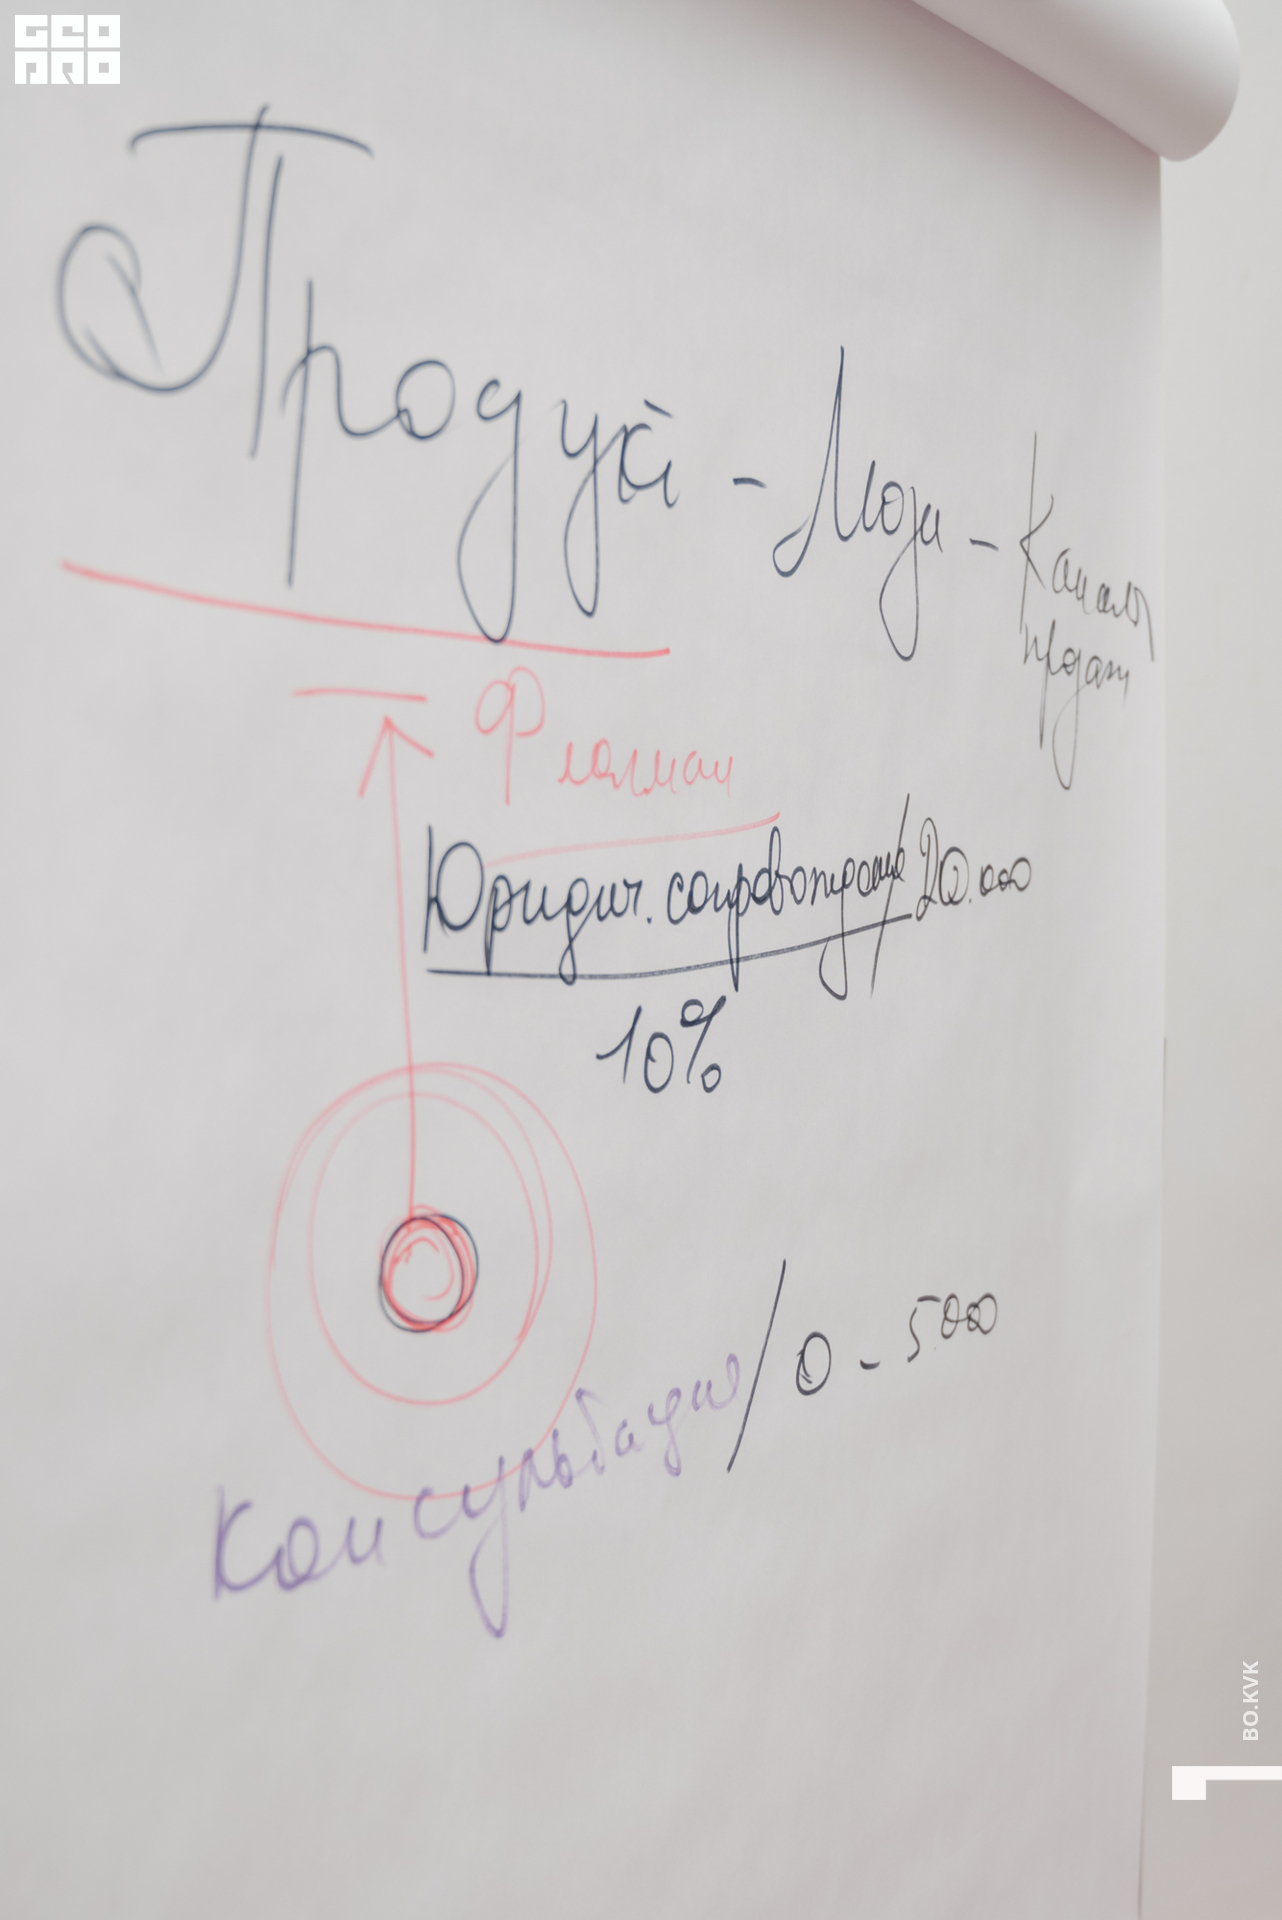 GEO
PRO
Продукт - Люди - Каналы
продаж
Флагман
Юридич. сопровождение / 20.000
10%
Консультация / 0 - 5.000
BO.KVK